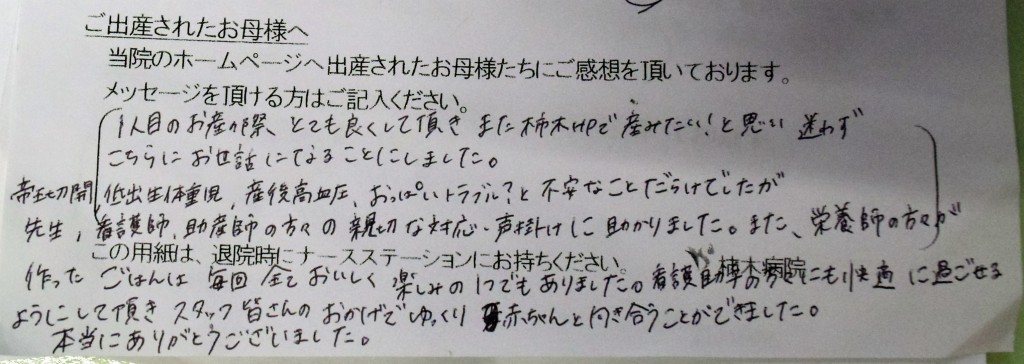 ご出産されたお母様へ
当院のホームページへ出産されたお母様たちにご感想を頂いております。
メッセージを頂ける方はご記入ください。
1人目のお産の際、とても良くして頂き また柿木HPで産みたい!と思い 迷わず
こちらにお世話になることにしました。
帝王切開、低出生体重児、産後高血圧、おっぱいトラブル?と不安なことだらけでしたが
先生、看護師、助産師の方々の親切な対応・声掛けに助かりました。また、栄養師の方々が
この用紙は、退院時にナースステーションにお持ちください。 柿木病院
作った ごはんは 毎回 全て おいしく 楽しみの1つでもありました。看護 にも快適に過ごせる
ようにして頂き スタッフ皆さんの おかげで ゆっくり 赤ちゃんと向き合うことができました。
本当にありがとうございました。